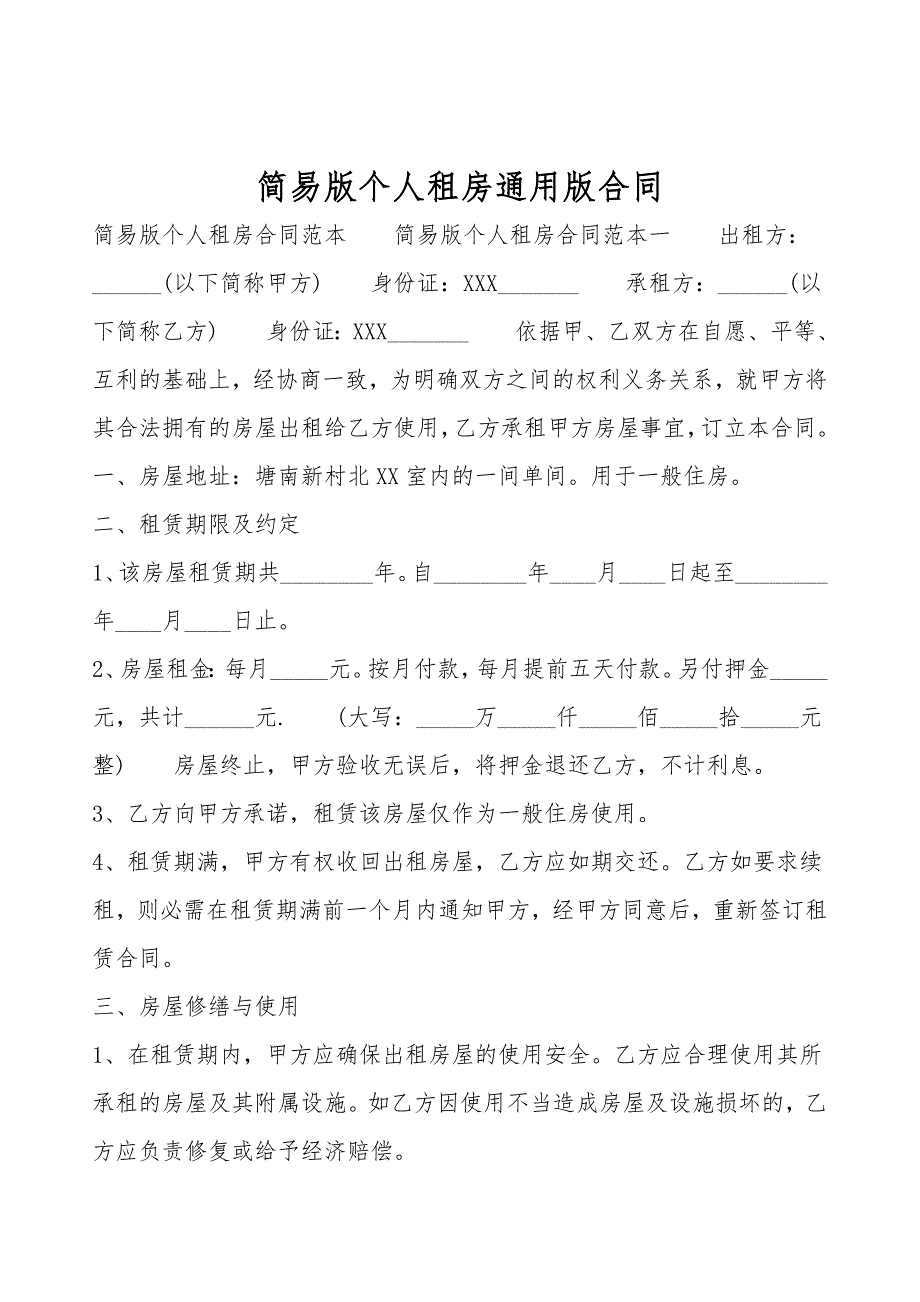 简易版个人租房通用版合同
简易版个人租房合同范本　　简易版个人租房合同范本一　　出租方：
______(以下简称甲方)　　身份证：XXX_______　　承租方：______(以
下简称乙方)　　身份证：XXX_______　　依据甲、乙双方在自愿、平等、
互利的基础上，经协商一致，为明确双方之间的权利义务关系，就甲方将
其合法拥有的房屋出租给乙方使用，乙方承租甲方房屋事宜，订立本合同。
一、房屋地址：塘南新村北 XX 室内的一间单间。用于一般住房。
二、租赁期限及约定
1、该房屋租赁期共________年。自________年____月____日起至________
年____月____日止。
2、房屋租金：每月_____元。按月付款，每月提前五天付款。另付押金_____
元，共计______元.　　(大写：_____万_____仟_____佰_____拾_____元
整)　　房屋终止，甲方验收无误后，将押金退还乙方，不计利息。
3、乙方向甲方承诺，租赁该房屋仅作为一般住房使用。
4、租赁期满，甲方有权收回出租房屋，乙方应如期交还。乙方如要求续
租，则必需在租赁期满前一个月内通知甲方，经甲方同意后，重新签订租
赁合同。
三、房屋修缮与使用
1、在租赁期内，甲方应确保出租房屋的使用安全。乙方应合理使用其所
承租的房屋及其附属设施。如乙方因使用不当造成房屋及设施损坏的，乙
方应负责修复或给予经济赔偿。